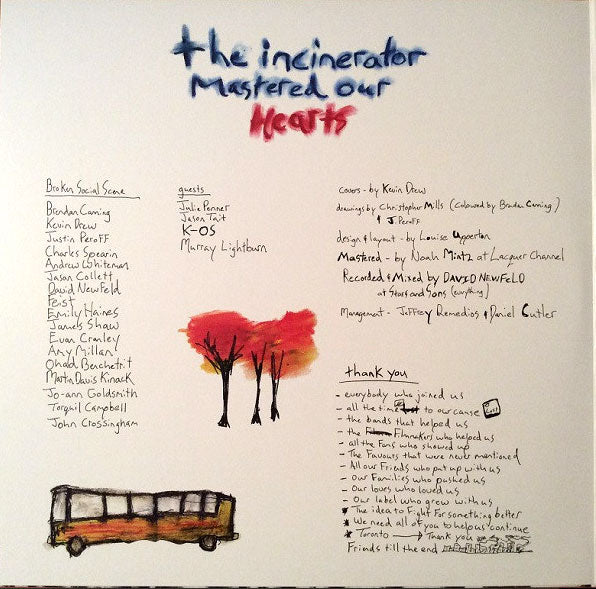 the incinerator
Mastered our
Hearts
Broken Social Scene
Brendan Canning
Kevin Drew
Justin Peroff
Charles Spearin
Andrew Whiteman
Jason Collett
David Newfeld
Feist
Emily Haines
James Shaw
Evan Cranley
Amy Millan
Ohad Benchetrit
Martin Davis Kinack
Jo-ann Goldsmith
Torquil Campbell
John Crossingham
guests
Julie Penner
Jason Tait
K-OS
Murray Lightburn
covers - by Kevin Drew
drawings by Christopher Mills (coloured by Brendan Canning)
& J. Peroff
design & layout - by Louise Upperton
Mastered - by Noah Mintz at Lacquer Channel
Recorded & Mixed by DAVID NEWFELD
at Stars and Sons (everything)
Management - Jeffrey Remedios & Daniel Cutler
thank you
- everybody who joined us
- all the time to our cause
- the bands that helped us
- the Filmmakers who helped us
- all the Fans who showed up
- The Favours that were never mentioned
- All our Friends who put up with us
- Our Families who pushed us
- Our loves who loved us
- Our label who grew with us
* The idea to Fight For something better
* We need all of you to help us continue
* Toronto → Thank you
Friends till the end